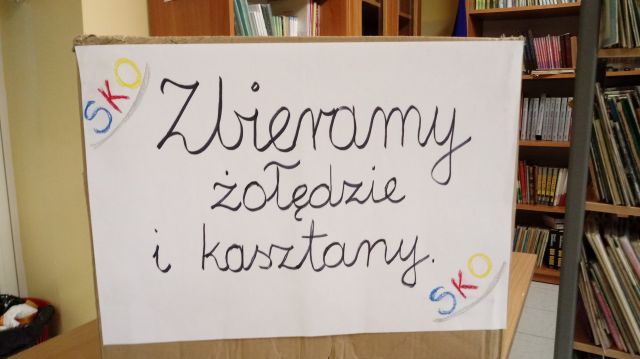 SKO
Zbieramy
żołędzie
i kasztany.
SKO